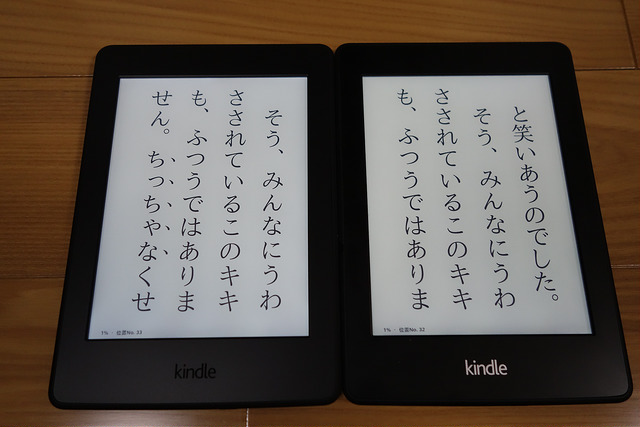 そう、みんなにうわ
さされているこのキキ
も、ふつうではありま
せん。ちっちゃなくせ
1% ・ 位置No. 33
kindle
と笑いあうのでした。
そう、みんなにうわ
さされているこのキキ
も、ふつうではありま
1% ・ 位置No. 32
kindle